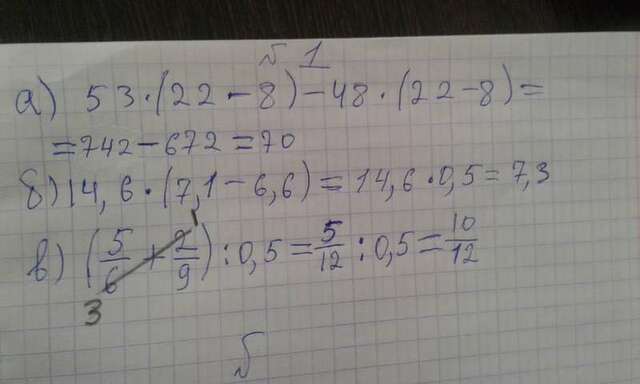 № 1
а) 53·(22-8)-48·(22-8)=
=742-672=70
б) 14,6·(7,1-6,6)=14,6·0,5=7,3
в) (5/6+2/9):0,5=5/12:0,5=10/12
1
3
№